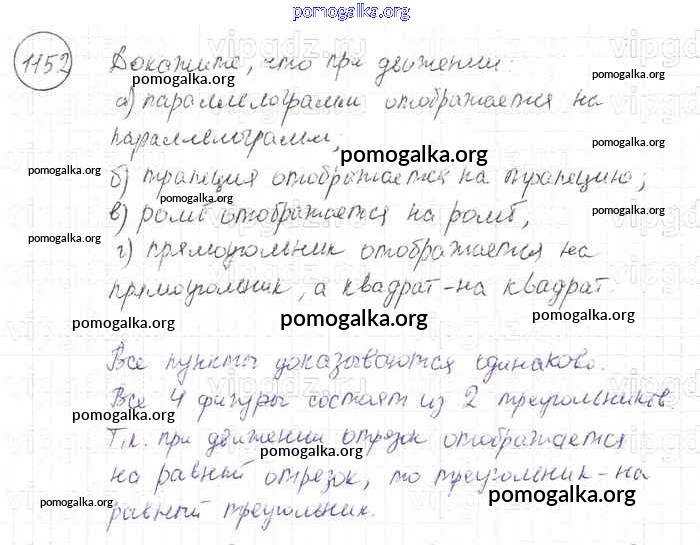 pomogalka.org
1152 Докажите, что при движении:
pomogalka.org pomogalka.org
а) параллелограмм отображается на
параллелограмм;
pomogalka.org
pomogalka.org б) трапеция отображается на трапецию;
в) ромб отображается на ромб,
pomogalka.org pomogalka.org
г) прямоугольник отображается на
прямоугольник, а квадрат - на квадрат.
pomogalka.org pomogalka.org pomogalka.org
Все пункты доказываются одинаково.
Все 4 фигуры состоят из 2 треугольников.
pomogalka.org pomogalka.org
Т.к. при движении отрезок отображается
pomogalka.org
на равный отрезок, то треугольник - на
pomogalka.org pomogalka.org
равный треугольник.